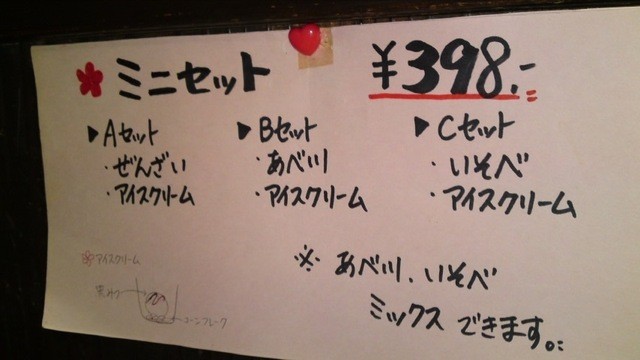 ミニセット ¥398.-
▶Aセット ▶Bセット ▶Cセット
・ぜんざい ・あべ川 ・いそべ
・アイスクリーム ・アイスクリーム ・アイスクリーム
アイスクリーム
※ あべ川、いそべ
黒みつ
コーンフレーク
ミックスできます。